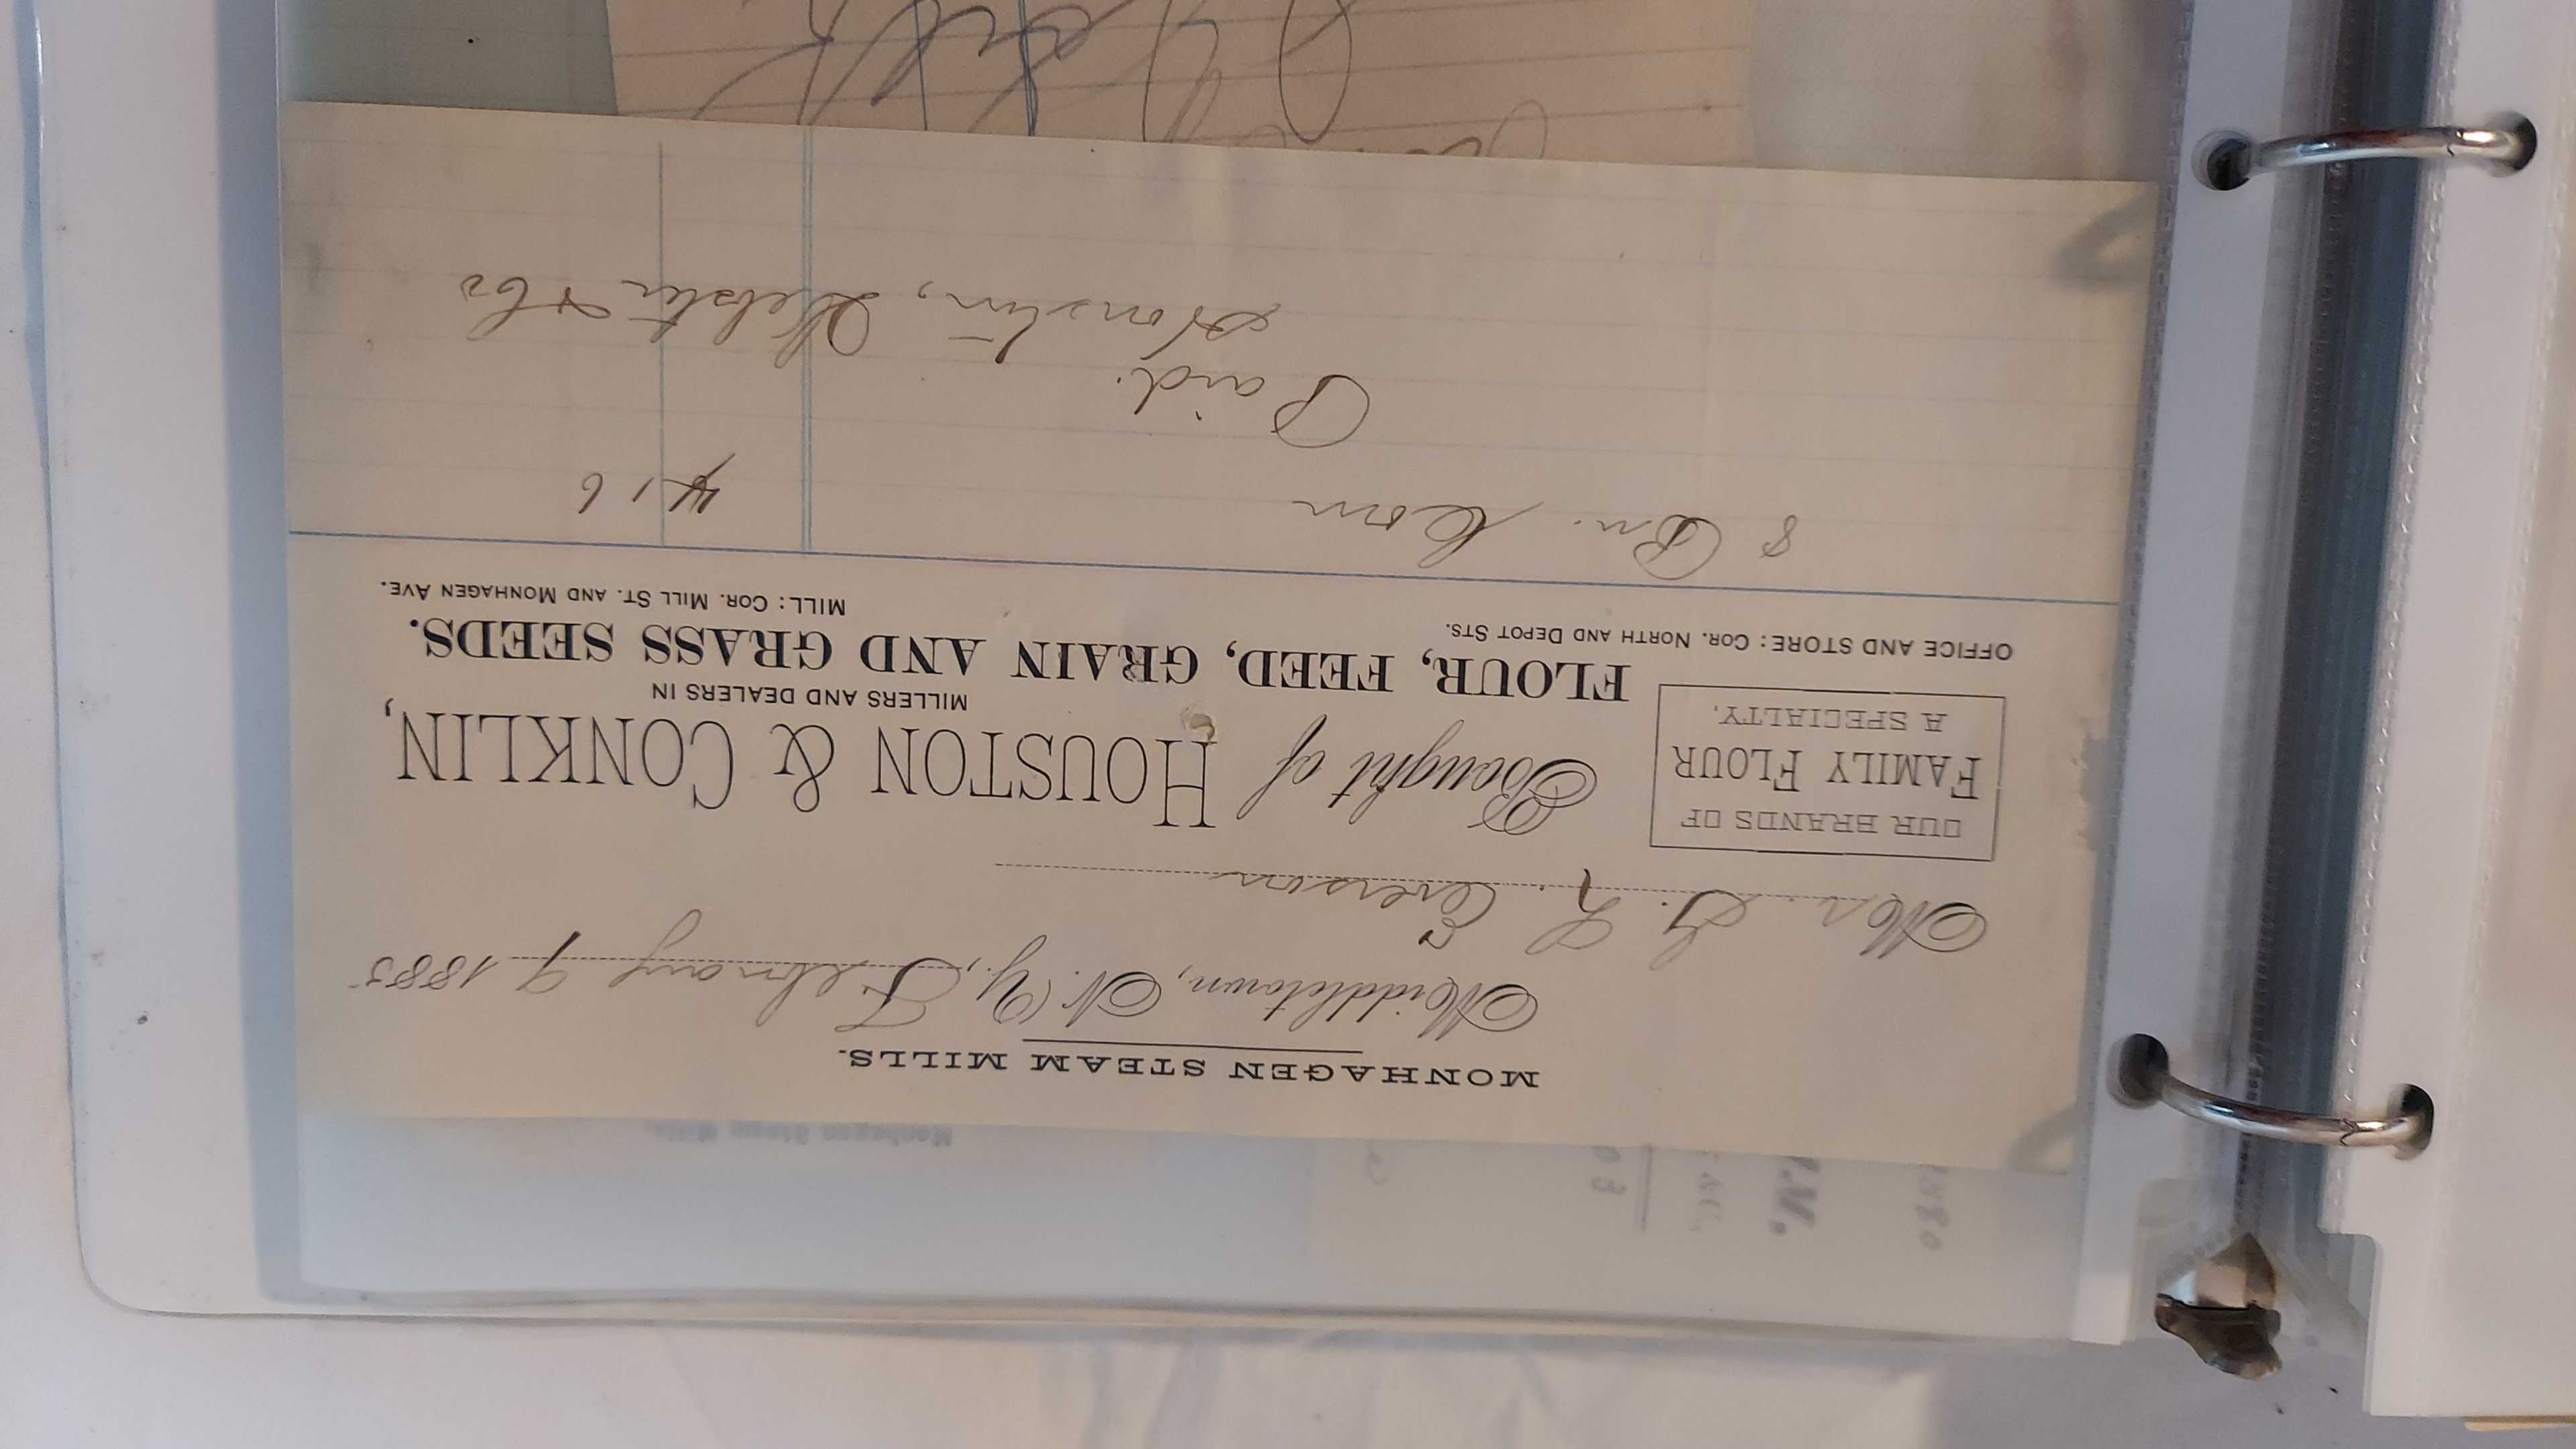 MONHAGEN STEAM MILLS.
Middletown, N. Y., February 9 1885
Mr. G. L. Everson
OUR BRANDS OF
FAMILY FLOUR
A SPECIALTY.
Bought of HOUSTON & CONKLIN,
MILLERS AND DEALERS IN
FLOUR, FEED, GRAIN AND GRASS SEEDS.
OFFICE AND STORE: COR. NORTH AND DEPOT STS.
MILL: COR. MILL ST. AND MONHAGEN AVE.
8 Bu. Corn 4 16
Paid.
Houston, Webster & Co